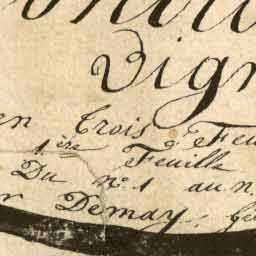 Vign
en Trois Feu
1ère Feuille
Du n° 1 au n
r Demay, Gé